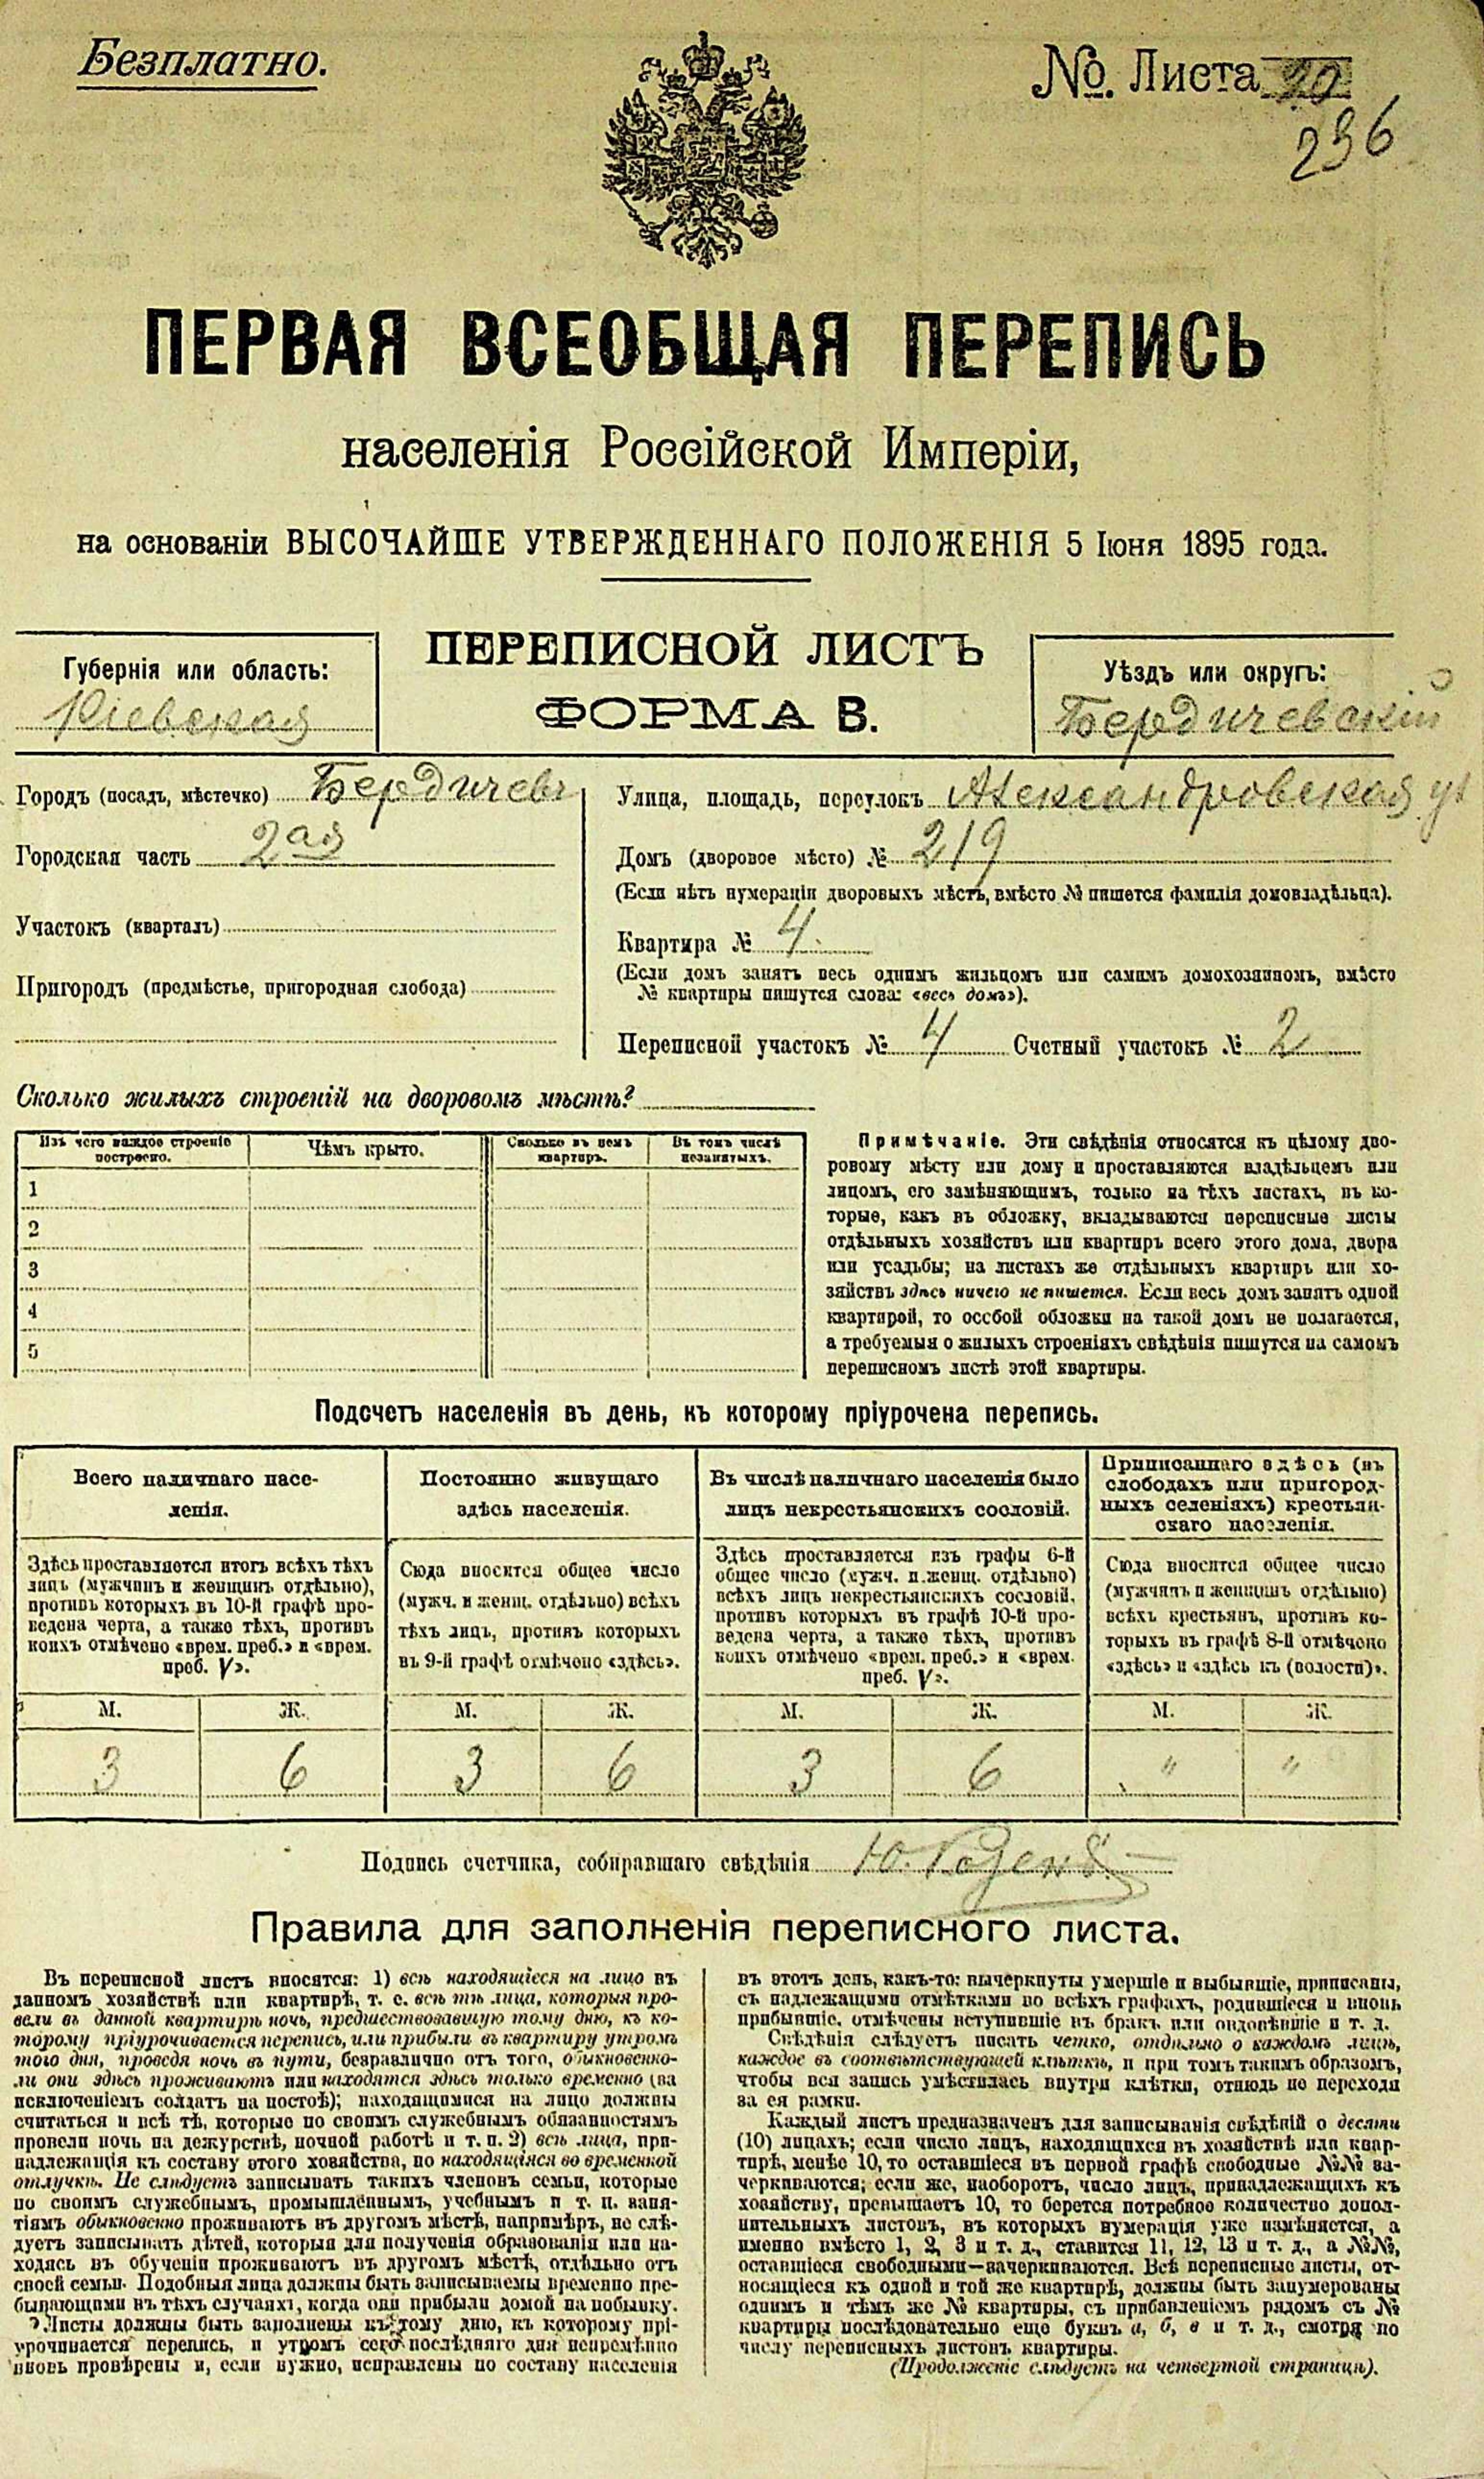 Безплатно.
№. Листа 20
236
ПЕРВАЯ ВСЕОБЩАЯ ПЕРЕПИСЬ
населенія Россійской Имперіи,
на основаніи ВЫСОЧАЙШЕ УТВЕРЖДЕННАГО ПОЛОЖЕНІЯ 5 Іюня 1895 года.
ПЕРЕПИСНОЙ ЛИСТЪ
ФОРМА В.
Губернія или область:
Кіевская
Уѣздъ или округъ:
Бердичевскій
Городъ (посадъ, мѣстечко) Бердичевъ
Городская часть 2ая
Участокъ (кварталъ)
Пригородъ (предмѣстье, пригородная слобода)
Улица, площадь, переулокъ Александровская ул
Домъ (дворовое мѣсто) № 219
(Если нѣтъ нумераціи дворовыхъ мѣстъ, вмѣсто № пишется фамилія домовладѣльца).
Квартира № 4
(Если домъ занятъ весь однимъ жильцомъ или самимъ домохозяиномъ, вмѣсто
№ квартиры пишутся слова: «весь домъ»).
Переписной участокъ № 4 Счетный участокъ № 2
Сколько жилыхъ строеній на дворовомъ мѣстѣ?
Изъ чего каждое строеніе
построено.
Чѣмъ крыто.
Сколько въ немъ
квартиръ.
Въ томъ числѣ
незанятыхъ.
1
2
3
4
5
Примѣчаніе. Эти свѣдѣнія относятся къ цѣлому дво-
ровому мѣсту или дому и проставляются владѣльцемъ или
лицомъ, его замѣняющимъ, только на тѣхъ листахъ, въ ко-
торые, какъ въ обложку, вкладываются переписные листы
отдѣльныхъ хозяйствъ или квартиръ всего этого дома, двора
или усадьбы; на листахъ же отдѣльныхъ квартиръ или хо-
зяйствъ здѣсь ничего не пишется. Если весь домъ занятъ одной
квартирой, то особой обложки на такой домъ не полагается,
а требуемыя о жилыхъ строеніяхъ свѣдѣнія пишутся на самомъ
переписномъ листѣ этой квартиры.
Подсчетъ населенія въ день, къ которому пріурочена перепись.
Всего наличнаго насе-
ленія.
Постоянно живущаго
здѣсь населенія.
Въ числѣ наличнаго населенія было
лицъ некрестьянскихъ сословій.
Приписаннаго здѣсь (въ
слободахъ или пригород-
ныхъ селеніяхъ) крестьян-
скаго населенія.
Здѣсь проставляется итогъ всѣхъ тѣхъ
лицъ (мужчинъ и женщинъ отдѣльно),
противъ которыхъ въ 10-й графѣ про-
ведена черта, а также тѣхъ, противъ
коихъ отмѣчено «врем. преб.» и «врем.
преб. V».
Сюда вносится общее число
(мужч. и женщ. отдѣльно) всѣхъ
тѣхъ лицъ, противъ которыхъ
въ 9-й графѣ отмѣчено «здѣсь».
Здѣсь проставляется изъ графы 6-й
общее число (мужч. и женщ. отдѣльно)
всѣхъ лицъ некрестьянскихъ сословій,
противъ которыхъ въ графѣ 10-й про-
ведена черта, а также тѣхъ, противъ
коихъ отмѣчено «врем. преб.» и «врем.
преб. V».
Сюда вносится общее число
(мужчинъ и женщинъ отдѣльно)
всѣхъ крестьянъ, противъ ко-
торыхъ въ графѣ 8-й отмѣчено
«здѣсь» и «здѣсь къ (волости)».
М. Ж. М. Ж. М. Ж. М. Ж.
3 6 3 6 3 6 " "
Подпись счетчика, собиравшаго свѣдѣнія Ю.
Правила для заполненія переписного листа.
Въ переписной листъ вносятся: 1) всѣ находящіеся на лицо въ
данномъ хозяйствѣ или квартирѣ, т. е. всѣ тѣ лица, которыя про-
вели въ данной квартирѣ ночь, предшествовавшую тому дню, къ ко-
торому пріурочивается перепись, или прибыли въ квартиру утромъ
того дня, проведя ночь въ пути, безразлично отъ того, обыкновенно-
ли они здѣсь проживаютъ или находятся здѣсь только временно (за
исключеніемъ солдатъ на постоѣ); находящимися на лицо должны
считаться и всѣ тѣ, которые по своимъ служебнымъ обязанностямъ
провели ночь на дежурствѣ, ночной работѣ и т. п. 2) всѣ лица, при-
надлежащія къ составу этого хозяйства, но находящіяся во временной
отлучкѣ. Не слѣдуетъ записывать такихъ членовъ семьи, которые
по своимъ служебнымъ, промышленнымъ, учебнымъ и т. п. заня-
тіямъ обыкновенно проживаютъ въ другомъ мѣстѣ, напримѣръ, не слѣ-
дуетъ записывать дѣтей, которыя для полученія образованія или на-
ходясь въ обученіи проживаютъ въ другомъ мѣстѣ, отдѣльно отъ
своей семьи. Подобныя лица должны быть записываемы временно пре-
бывающими въ тѣхъ случаяхъ, когда они прибыли домой на побывку.
Листы должны быть заполнены къ тому дню, къ которому прі-
урочивается перепись, и утромъ сего послѣдняго дня непремѣнно
вновь провѣрены и, если нужно, исправлены по составу населенія
въ этотъ день, какъ-то: вычеркнуты умершіе и выбывшіе, приписаны,
съ надлежащими отмѣтками во всѣхъ графахъ, родившіеся и вновь
прибывшіе, отмѣчены вступившіе въ бракъ или овдовѣвшіе и т. д.
Свѣдѣнія слѣдуетъ писать четко, отдѣльно о каждомъ лицѣ,
каждое въ соотвѣтствующей клѣткѣ, и при томъ такимъ образомъ,
чтобы вся запись умѣстилась внутри клѣтки, отнюдь не переходя
за ея рамки.
Каждый листъ предназначенъ для записыванія свѣдѣній о десяти
(10) лицахъ; если число лицъ, находящихся въ хозяйствѣ или квар-
тирѣ, менѣе 10, то оставшіеся въ первой графѣ свободные №№ за-
черкиваются; если же, наоборотъ, число лицъ, принадлежащихъ къ
хозяйству, превышаетъ 10, то берется потребное количество допол-
нительныхъ листовъ, въ которыхъ нумерація уже измѣняется, а
именно вмѣсто 1, 2, 3 и т. д., ставится 11, 12, 13 и т. д., а №№,
оставшіеся свободными—зачеркиваются. Всѣ переписные листы, от-
носящіеся къ одной и той же квартирѣ, должны быть занумерованы
однимъ и тѣмъ же № квартиры, съ прибавленіемъ рядомъ съ №
квартиры послѣдовательно еще буквъ а, б, в и т. д., смотря по
числу переписныхъ листовъ квартиры.
(Продолженіе слѣдуетъ на четвертой страницѣ).